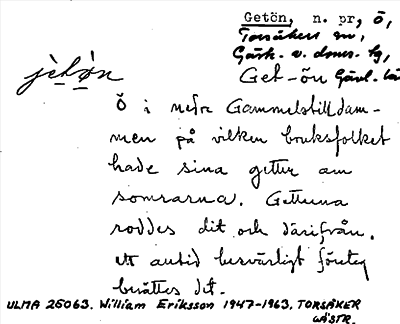 Getön, n. pr, ö,
Torsåkers sn,
Gästr. v. doms. hg,
Get-ön Gävl. län
jètø̀n
Ö i nedre Gammelstilldam-
men på vilken bruksfolket
hade sina getter om
somrarna. Getterna
roddes dit och därifrån.
ett antid besvärligt företag
berättes det.
ULMA 25063. William Eriksson 1947-1963. TORSÅKER
GÄSTR.